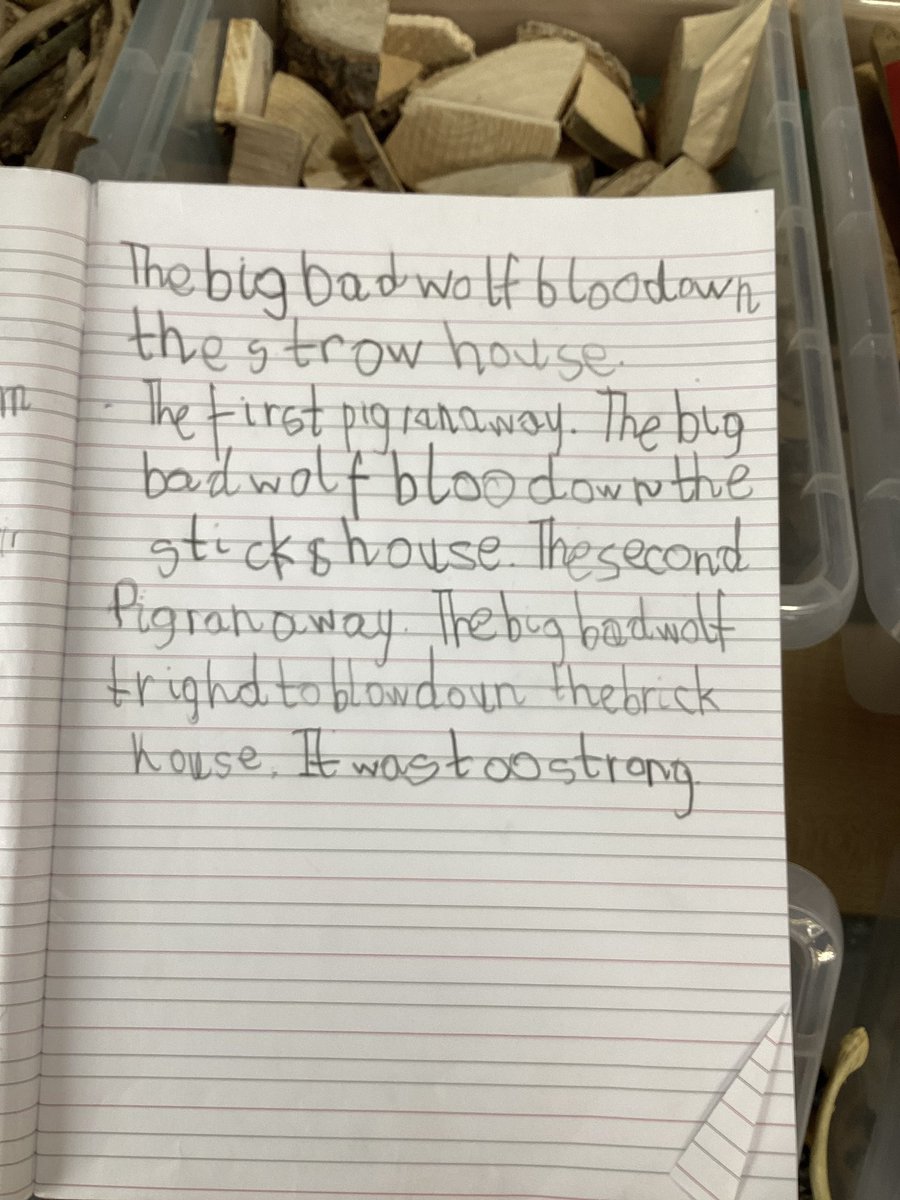 The big bad wolf bloo down
the strow house.
The first pig ran away. The big
bad wolf bloo down the
sticks house. The second
Pig ran away. The big bad wolf
trighd to blow doun the brick
house. It was too strong.